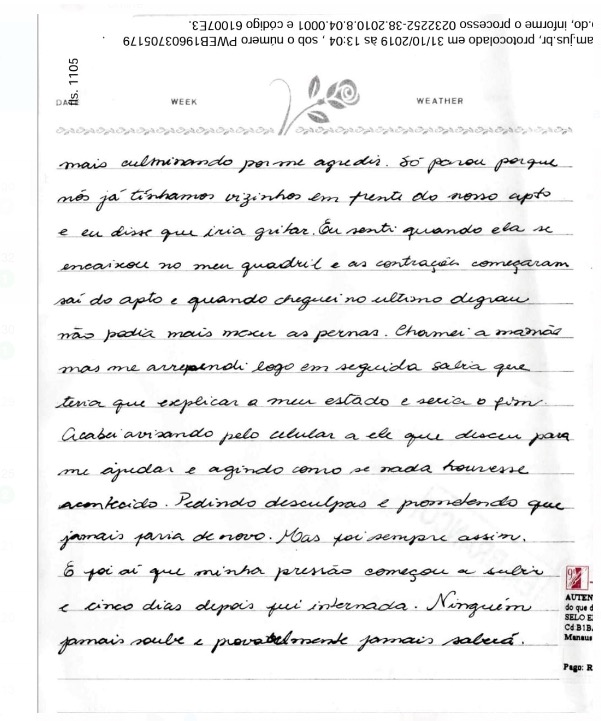 o.do, informe o processo 0232252-38.2010.8.04.0001 e código 61007E3.
am.jus.br, protocolado em 31/10/2019 às 13:04 , sob o número PWEB19603705179
fls. 1105
DA
WEEK
WEATHER
mais culminando por me agredir. Só parou porque
nós já tínhamos vizinhos em frente do nosso apto
e eu disse que iria gritar. Eu senti quando ela se
encaixou no meu quadril e as contrações começaram
saí do apto e quando cheguei no ultimo degrau
não podia mais mexer as pernas. Chamei a mamãe
mas me arrependi logo em seguida sabia que
teria que explicar a meu estado e seria o fim.
Acabei avisando pelo celular a ele que desceu para
me ajudar e agindo como se nada houvesse
acontecido. Pedindo desculpas e prometendo que
jamais faria de novo. Mas foi sempre assim.
E foi aí que minha pressão começou a subir
e cinco dias depois fui internada. Ninguém
jamais soube e provavelmente jamais saberá.
AUTEN
do que d
SELO E
Cd B1B.
Manaus
Pago: R